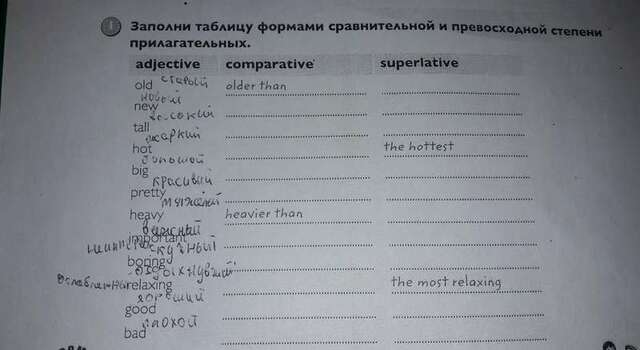 1 Заполни таблицу формами сравнительной и превосходной степени
прилагательных.
adjective comparative superlative
old старый older than
новый
new
высокий
tall
жаркий
hot the hottest
большой
big
красивый
pretty
тяжёлый
heavy heavier than
важный
important
скучный
boring
relaxing the most relaxing
хороший
good
плохой
bad